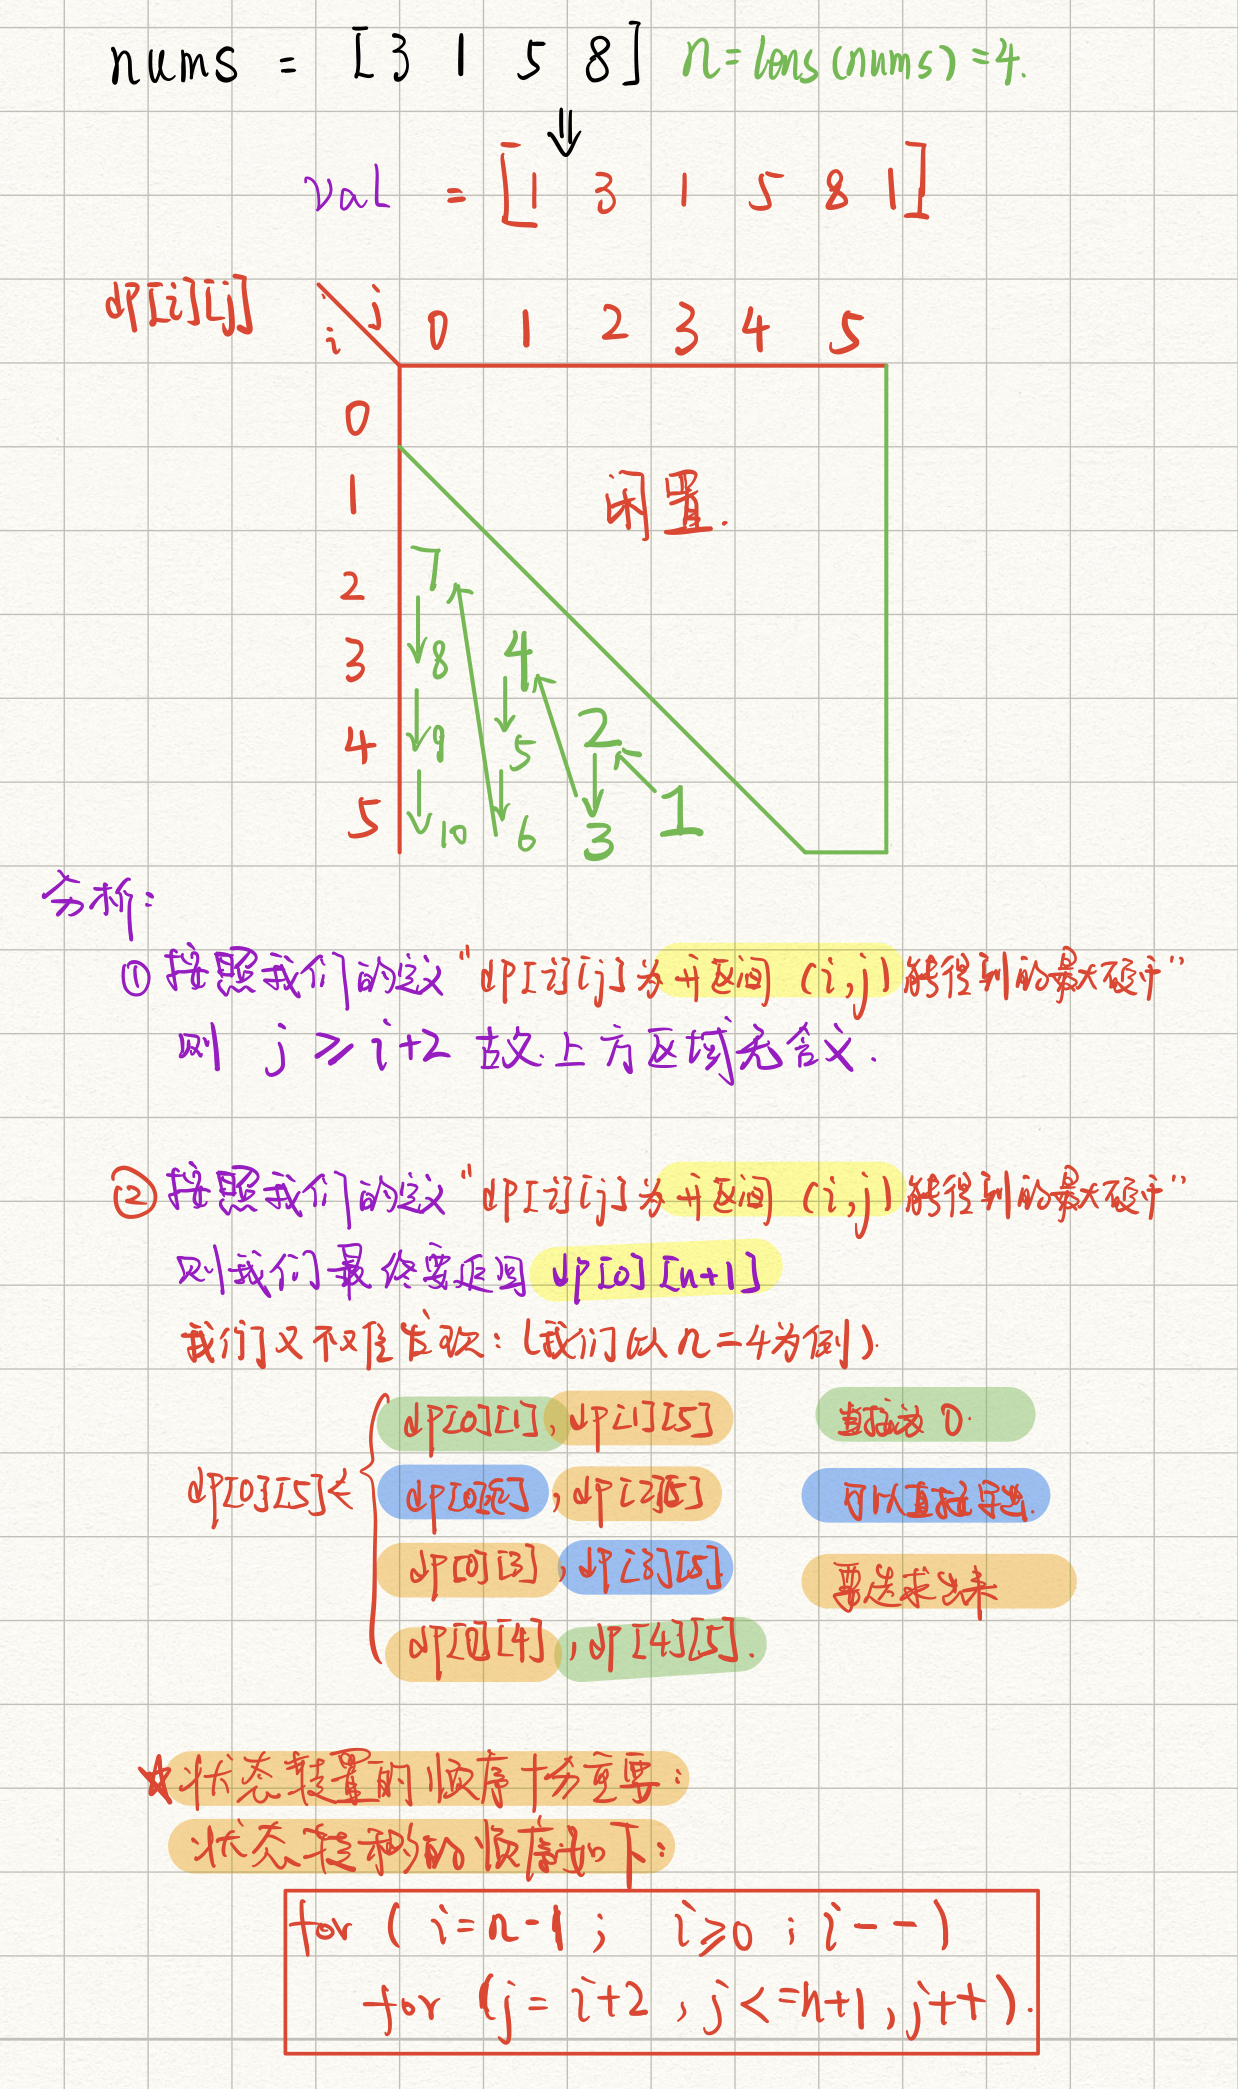 nums = [3 1 5 8] n=lens(nums)=4.
⇓
val = [1 3 1 5 8 1]
dp[i][j] i j 0 1 2 3 4 5
0
1 闲置.
2 7
3 8 4
4 9 5 2
5 10 6 3 1
分析:
① 按照我们的定义"dp[i][j]为开区间(i,j)能得到的最大硬币"
则 j≥i+2 故上方区域无含义.
② 按照我们的定义"dp[i][j]为开区间(i,j)能得到的最大硬币"
则我们最终要返回 dp[0][n+1]
我们又不难发现:(我们以n=4为例).
dp[0][1],dp[1][5] 直接为0.
dp[0][5]← dp[0][2],dp[2][5] 可以直接导出.
dp[0][3],dp[3][5] 要先求出来
dp[0][4],dp[4][5].
☆状态转置的顺序十分重要:
状态转移的顺序如下:
for ( i=n-1; i≥0; i--)
for (j=i+2,j<=n+1,j++).